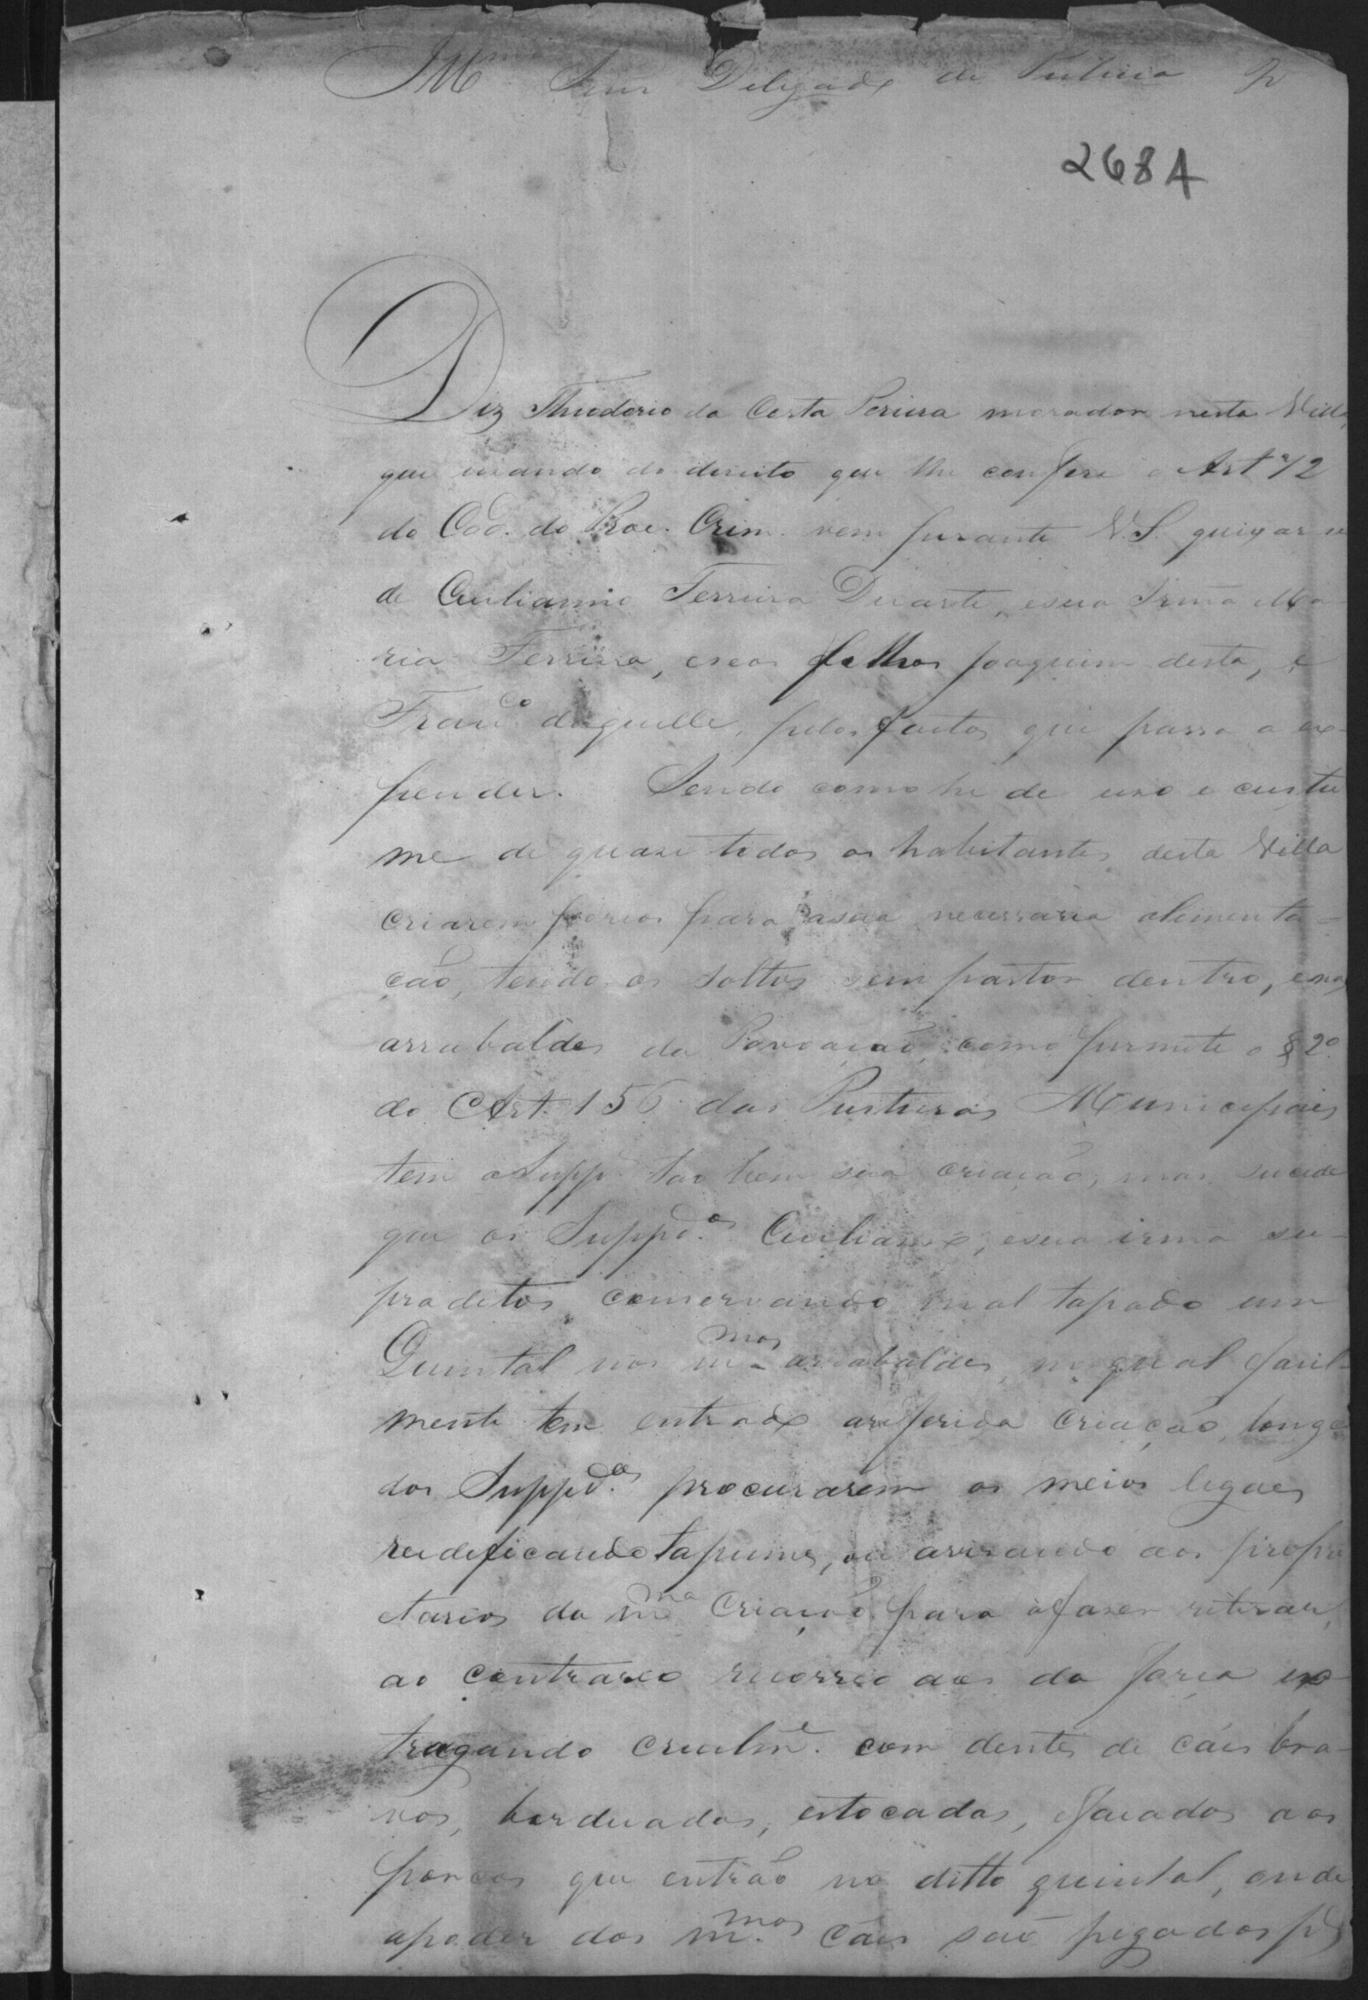 Illm Snr Delegado de Policia
2684
Diz Theodorio da Costa Pereira morador nesta Villa
que usando do direito que lhe confere o Art 72
do Cod. do Proc. Crim. vem perante V.S. queixar se
de Ferreira Duarte, esua Irmã Ma-
ria Ferreira, eseos filhos Joaquim desta, e
Franco. daquelle, pelos factos que passa a ex-
pender. Sendo como he de uso e custu
me de quase todos os habitantes desta Villa
criarem porcos para asua necessaria alimenta-
ção, tendo os soltos sem pastor dentro, enos
arrabaldes da Povoação, como permite o § 2º
do Art. 156 das Posturas Municipais
tem o Supp. tao bem sua criação, mas sucede
que os Suppd.os esua irma su-
praditos, conservando mal tapado um
Quintal nos m.mos arrabaldes, no qual facil-
mente tem entrada areferida criação, longe
dos Suppd.os procurarem os meios legaes
reidificando tapumes, ou avisando aos propri
etarios da m.ma criação para afaser retirar,
ao contrario recorreo aos da força es-
tragando cruelm.e com dentes de cães bra-
vos, borduadas, estocadas, efacadas aos
porcos que entrão no ditto quintal, onde
apoder dos m.mos cães são pegados p